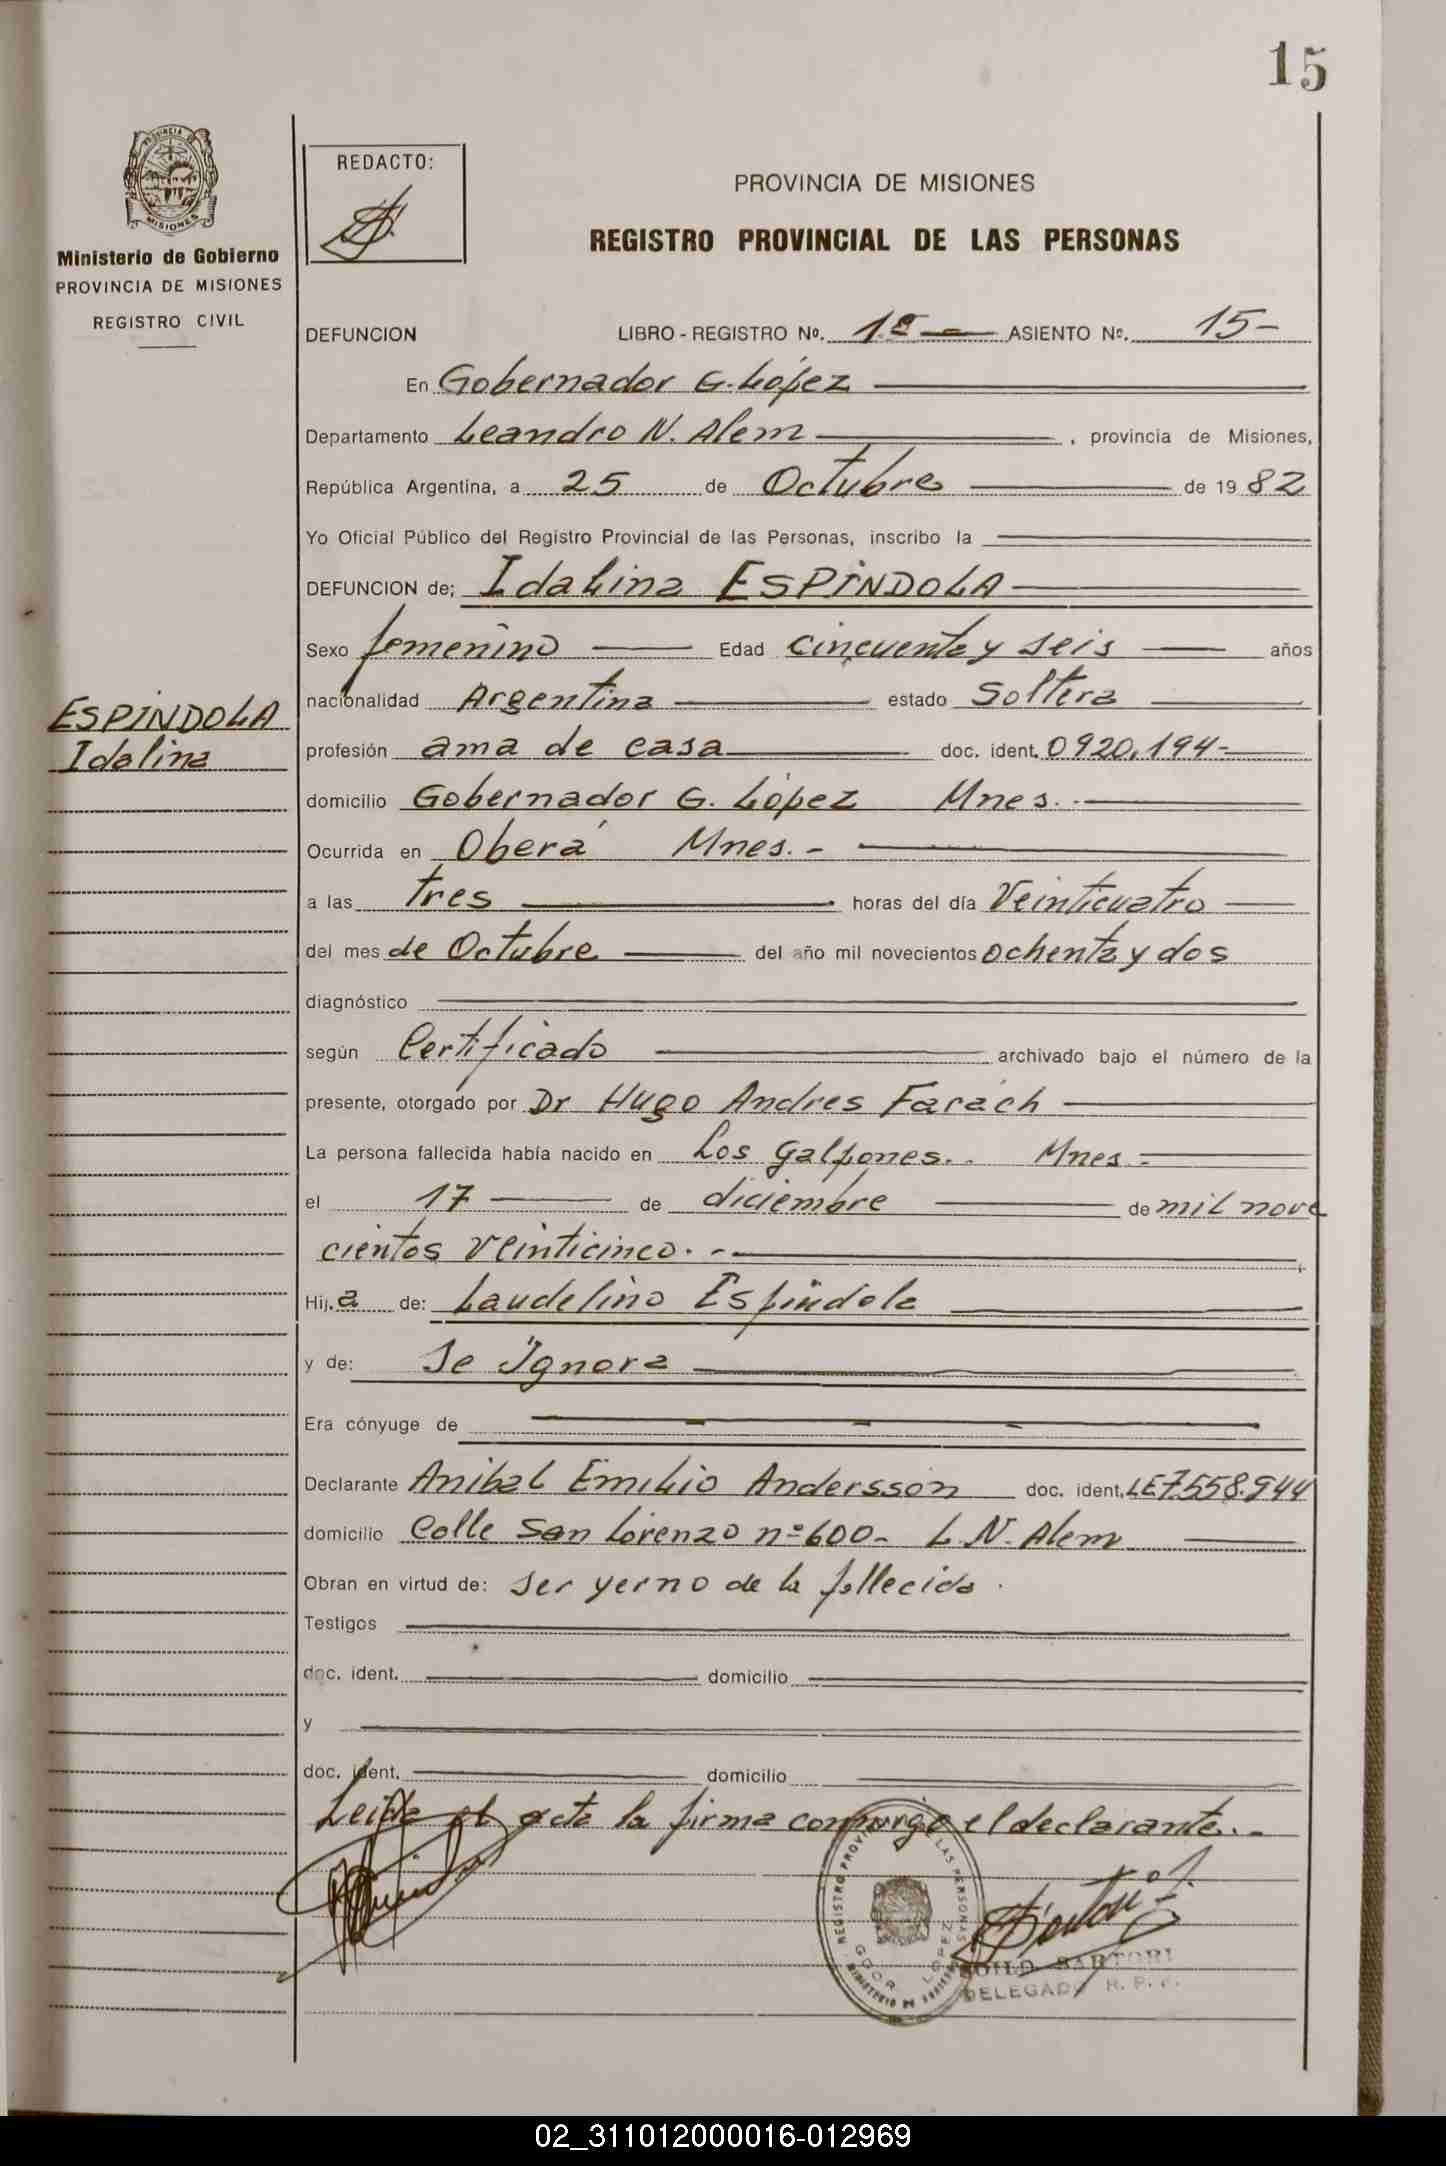 15
PROVINCIA DE
MISIONES
Ministerio de Gobierno
PROVINCIA DE MISIONES
REGISTRO CIVIL
REDACTO:
PROVINCIA DE MISIONES
REGISTRO PROVINCIAL DE LAS PERSONAS
DEFUNCION LIBRO - REGISTRO Nº. 1º - ASIENTO Nº. 15-
En Gobernador G. López
Departamento Leandro N. Alem , provincia de Misiones,
República Argentina, a 25 de Octubre de 19 82
Yo Oficial Público del Registro Provincial de las Personas, inscribo la
DEFUNCION de; Idalina ESPÍNDOLA
Sexo femenino Edad cincuenta y seis años
ESPÍNDOLA
Idalina
nacionalidad Argentina estado Soltera
profesión ama de casa doc. ident. 0920.194-
domicilio Gobernador G. López Mnes.-
Ocurrida en Oberá Mnes.-
a las tres horas del día Veinticuatro
del mes de Octubre del año mil novecientos ochenta y dos
diagnóstico
según Certificado archivado bajo el número de la
presente, otorgado por Dr Hugo Andres Farach
La persona fallecida había nacido en Los galpones.. Mnes.-
el 17 de diciembre de mil nove
cientos Veinticinco.-
Hij.a de: Laudelino Espíndola
y de: Se Ignora
Era cónyuge de
Declarante Anibal Emilio Andersson doc. ident. LE7.558.944
domicilio Calle San Lorenzo nº600- L.N. Alem
Obran en virtud de: ser yerno de la fallecida.
Testigos
doc. ident. domicilio
y
doc. ident. domicilio
Leida el acta la firma conmigo el declarante.-
REGISTRO PROVINCIAL DE LAS PERSONAS
GDOR. LOPEZ
MINISTERIO DE GOBIERNO
SARTORI
DELEGADO R. P. P.
02_311012000016-012969